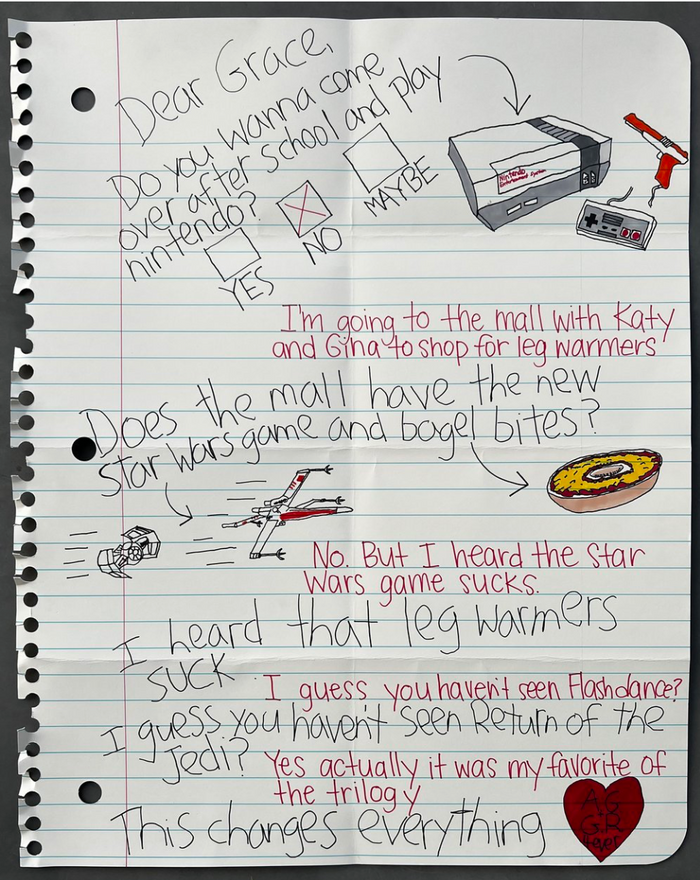 Dear Grace,
Do you wanna come
over after school and play
nintendo?
YES
NO
MAYBE
Nintendo
Entertainment System
I'm going to the mall with Katy
and Gina to shop for leg warmers
Does the mall have the new
Star Wars game and bagel bites?
No. But I heard the Star
Wars game sucks.
I heard that leg warmers
suck
I guess you haven't seen Flashdance?
I guess you haven't seen Return of the
Jedi?
Yes actually it was my favorite of
the trilogy
This changes everything
G.R
4ever